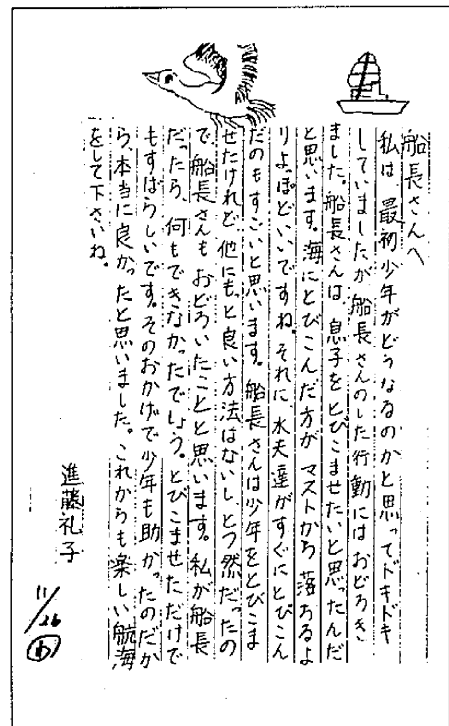 船長さんへ
私は、最初少年がどうなるのかと思ってドキドキ
していましたが船長さんのした行動にはおどろき
ました。船長さんは、息子をとびこませたいと思ったんだ
と思います。海にとびこんだ方が、マストから落ちるよ
りよっぽどいいですね。それに、水夫達がすぐにとびこん
だのもすごいと思います。船長さんは少年をとびこま
せたけれど、他にもっと良い方法はないし、とつ然だったの
で、船長さんもおどろいたことと思います。私が船長
だったら、何もできなかったでしょう。とびこませただけで
もすばらしいです。そのおかげで少年も助かったのだか
ら、本当に良かったと思いました。これからも楽しい航海
をして下さいね。
進藤礼子
11/26